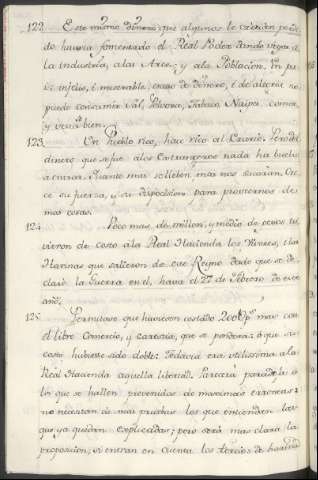 122. Este mismo dinero, que algunos le creeran perdi-
do, huviera fomentado el Real Poder dando vigor á
la industria, á las Artes, y á la Poblacion. Un pu-
infelix, i miserable, escaso de dinero, i de alegria no
puede consumir Sal, Polvora, Tabaco, Naipes, comer,
y vestir bien.
123. Un Pueblo rico, hace rico al Erario. Pero del
dinero que se fue á los Extrangeros nada ha buelto
á entrar. Quanto mas solteten, mas nos sacaran. Cre-
ce su fuerza, y su disposicion para proveernos de
mas cosas.
124. Poco mas de millon, y medio de pesos tu-
vieron de costo á la Real Hacienda los Viveres, i las
Harinas que salieron de este Reyno desde que se de-
claró la Guerra en el, hasta el 27 de Febrero de este
año.
125. Permitase que huviesen costado 200 p.s mas con
el libre Comercio, y carestia, que se pondera: ó que su
costo hubiese sido doble: Todavia era utilissima á la
Real Hacienda aquella libertad. Parecerá paradoja á
los que se hallen prevenidos de maximas erroneas:
no necesitan de mas pruebas los que entienden las
que ya quedan explicadas; pero será mas clara la
proposicion, si entran en cuenta los tercios de harina